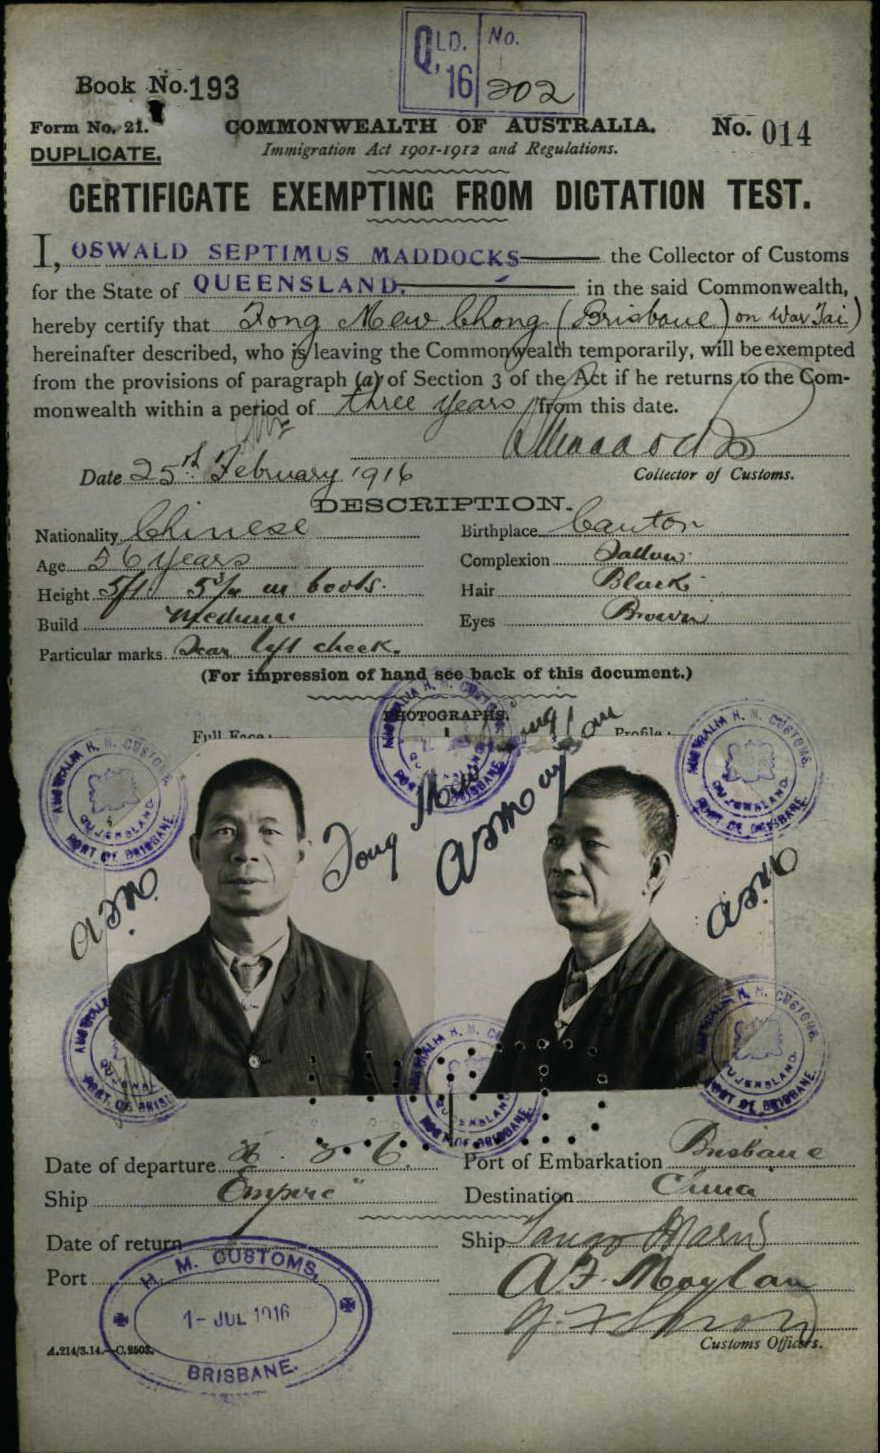 QLD. No.
16 202
Book No. 193
Form No. 21. COMMONWEALTH OF AUSTRALIA. No. 014
DUPLICATE. Immigration Act 1901-1912 and Regulations.
CERTIFICATE EXEMPTING FROM DICTATION TEST.
I, OSWALD SEPTIMUS MADDOCKS the Collector of Customs
for the State of QUEENSLAND. in the said Commonwealth,
hereby certify that Fong Mew Chong (Brisbane) on War Tai)
hereinafter described, who is leaving the Commonwealth temporarily, will be exempted
from the provisions of paragraph (a) of Section 3 of the Act if he returns to the Com-
monwealth within a period of three years from this date.
Date 25th February 1916 Collector of Customs.
DESCRIPTION.
Nationality Chinese Birthplace Canton
Age 56 years Complexion Sallow
Height 5ft 5¾ in boots. Hair Black
Build Medium Eyes Brown
Particular marks Scar left cheek.
(For impression of hand see back of this document.)
PHOTOGRAPHS.
Full Face: Profile:
AUSTRALIA H. M. CUSTOMS. QUEENSLAND. PORT OF BRISBANE
AUSTRALIA H. M. CUSTOMS. QUEENSLAND. PORT OF BRISBANE
AUSTRALIA H. M. CUSTOMS. QUEENSLAND. PORT OF BRISBANE
Fong Mew
Date of departure Port of Embarkation Brisbane
Ship "Empire" Destination China
Date of return Ship
Port A. F. Moylan
H. M. CUSTOMS.
1- JUL 1916
BRISBANE.
Customs Officers.
A.214/3.14.—C.2503.